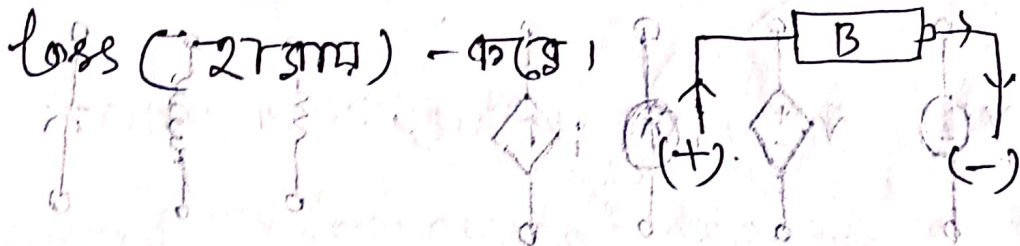 loss (হারায়) - করে।
B
(+) (-)